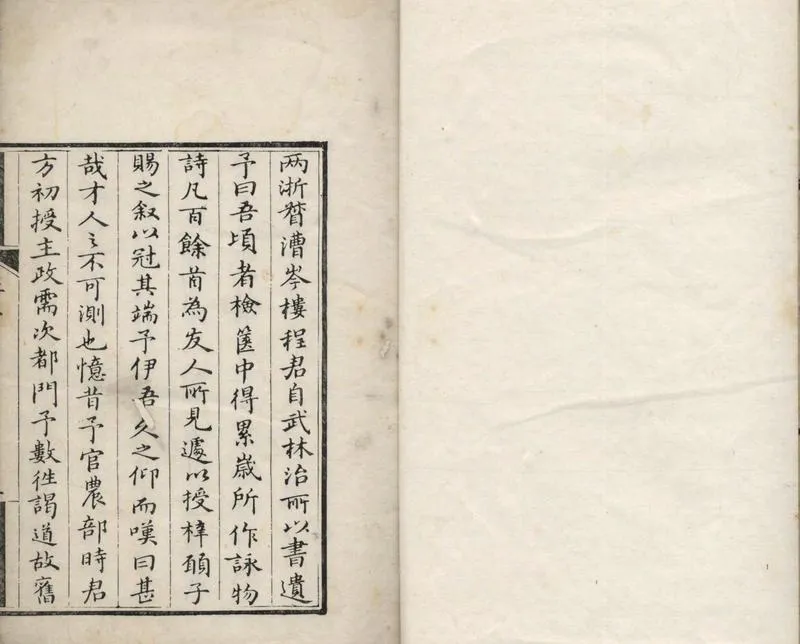 两浙督漕岑樓程君自武林治所以書遺
予曰吾頃者檢篋中得累歲所作詠物
詩凡百餘首為友人所見遽以授梓頋子
賜之叙以冠其端予伊吾久之仰而嘆曰甚
哉才人之不可測也憶昔予官農部時君
方初授主政需次都門予數徃謁道故舊